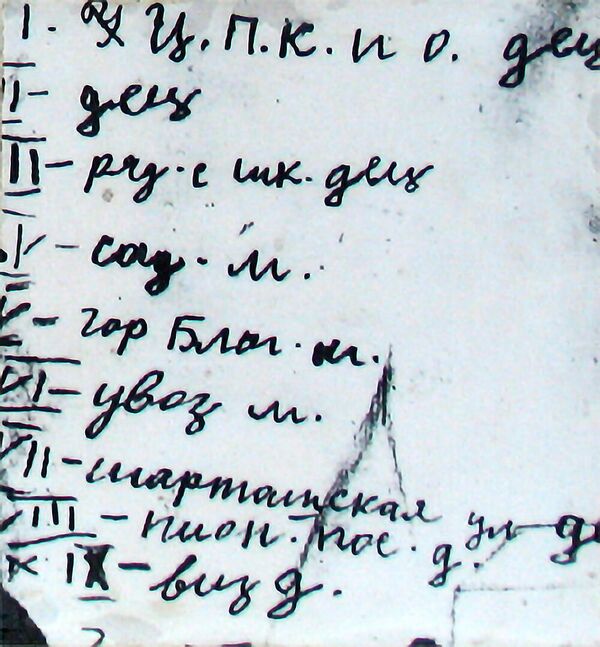 1. Ц.П.К. и О. дец
II - дец
III - ряд. с шк. дец
IV - сад. м.
V - гор Благ. м.
VI - увоз м.
VII - шарташская ул
VIII - пион. пос. д.
IX - виз д.